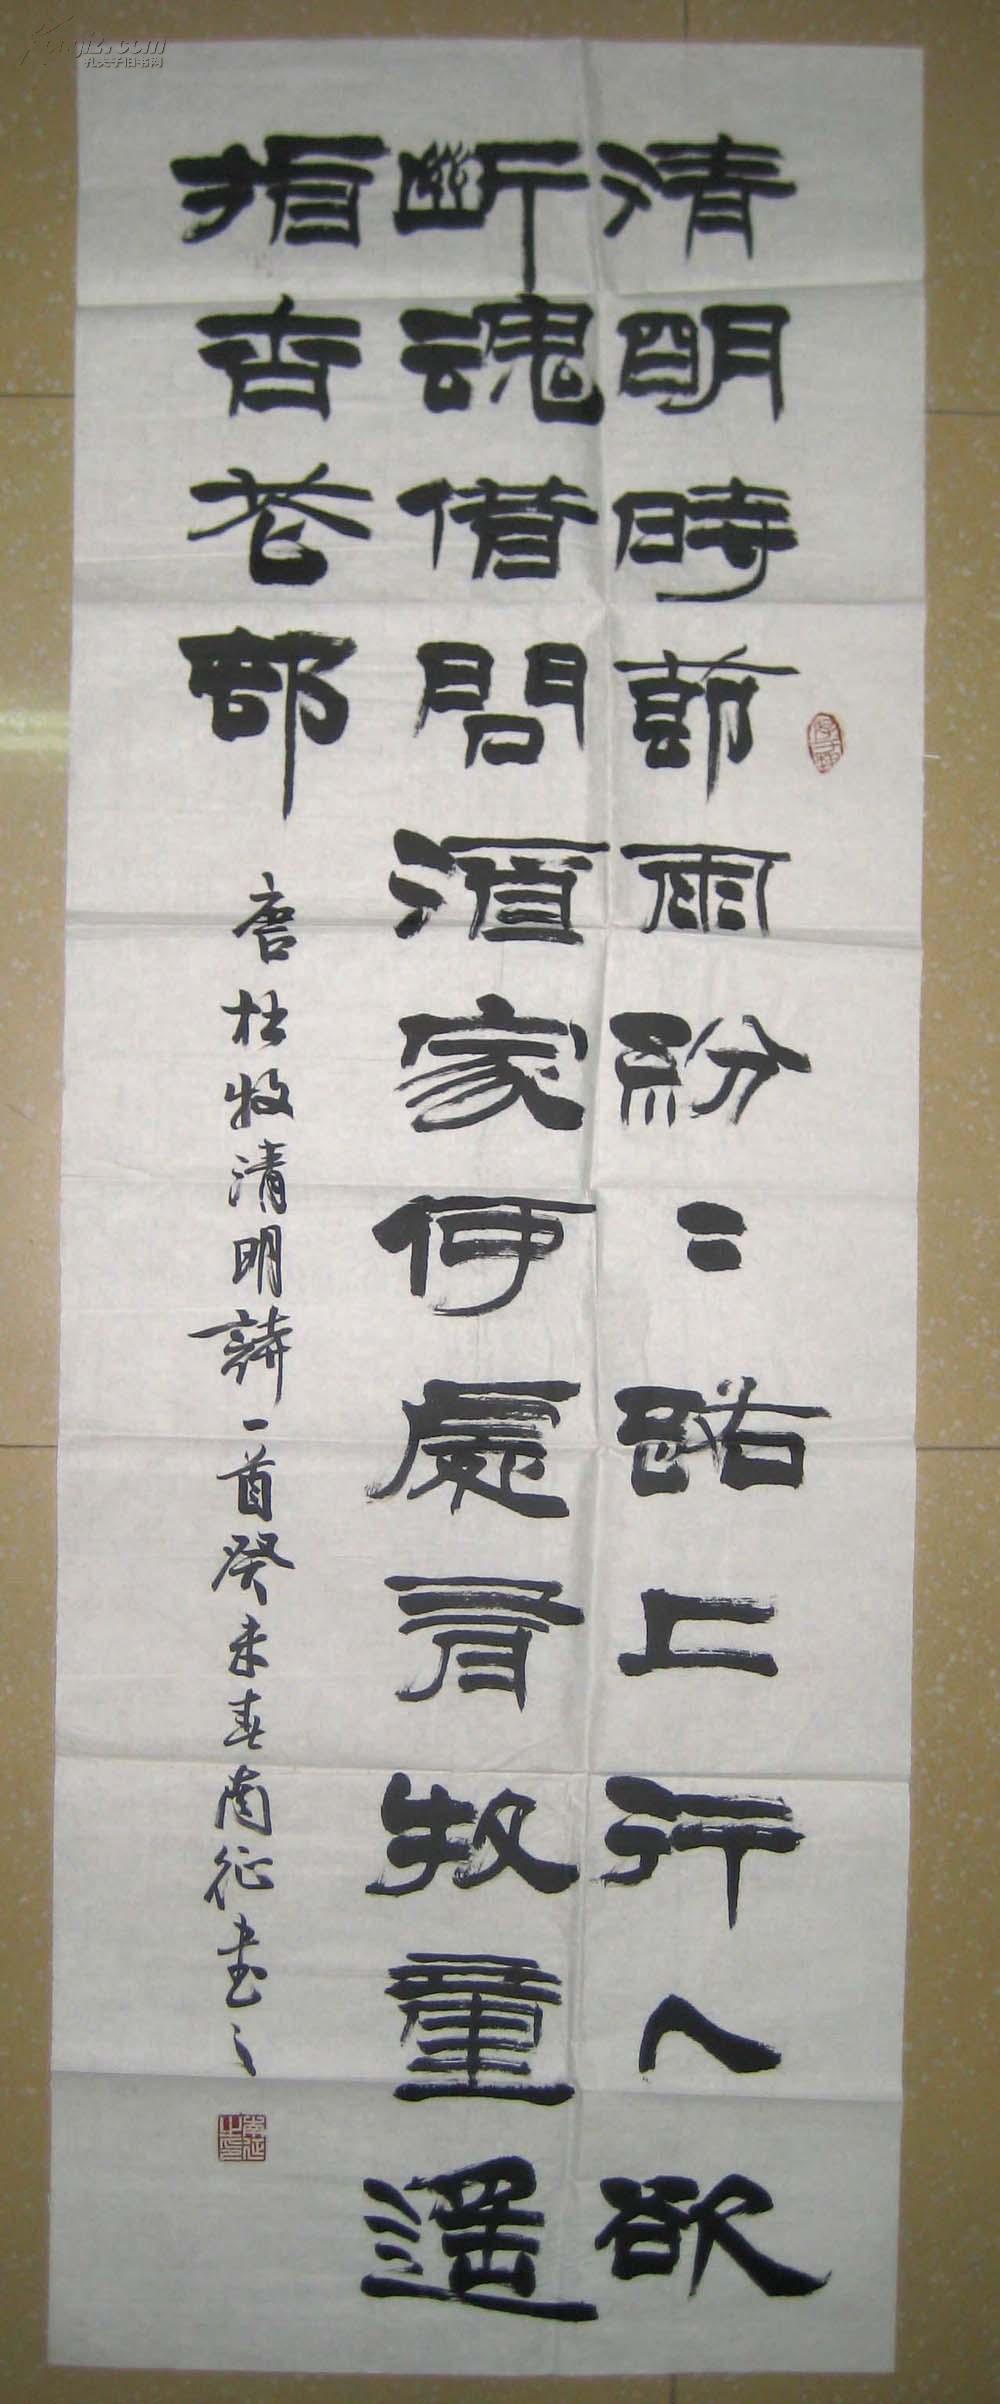 清明時節雨紛〻路上行人欲
斷魂借問酒家何處有牧童遥
指杏花邨
唐杜牧清明詩一首癸未春南征書之
南征之印
Kongfz.com
孔夫子旧书网